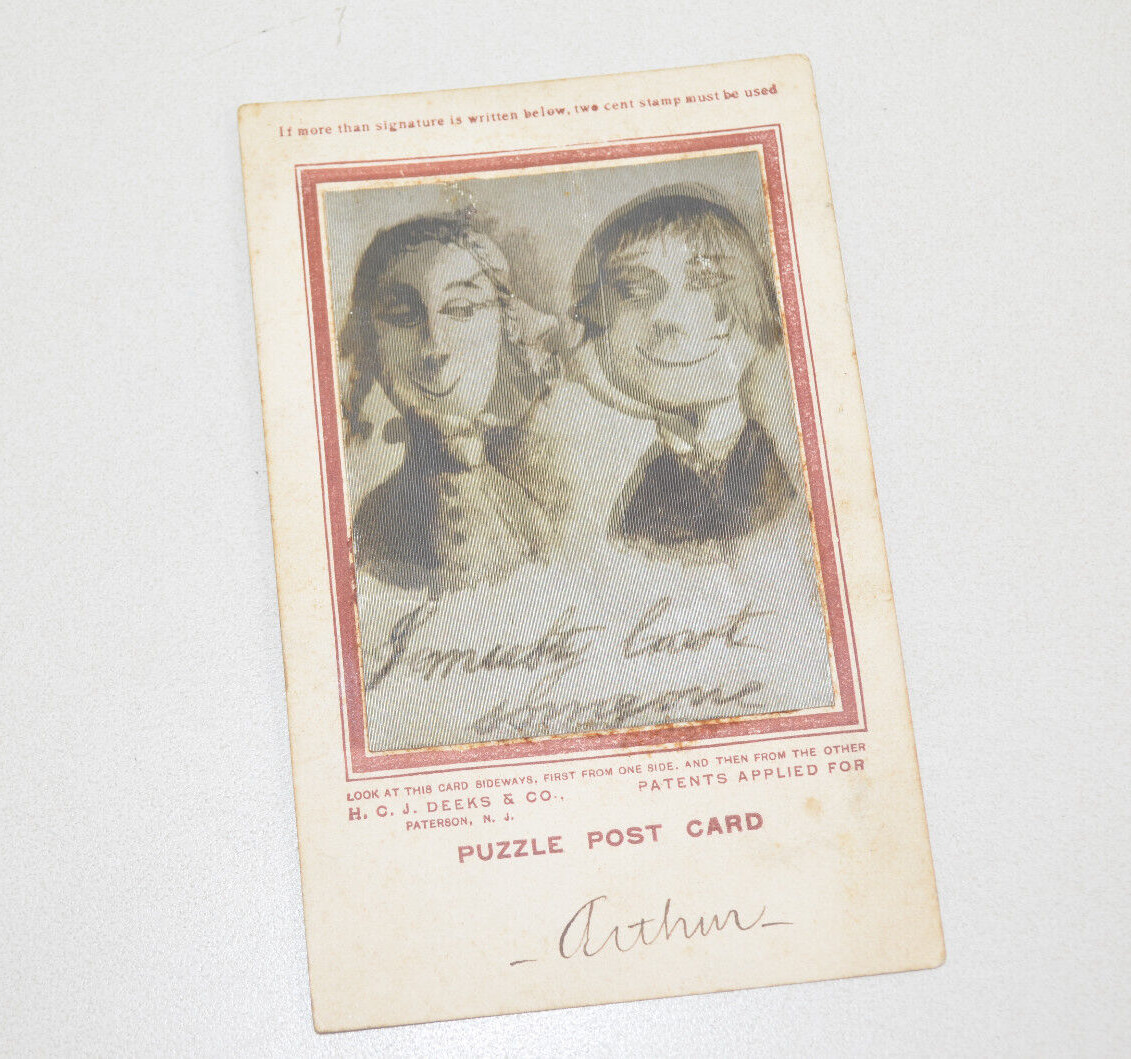 If more than signature is written below, two cent stamp must be used
LOOK AT THIS CARD SIDEWAYS, FIRST FROM ONE SIDE, AND THEN FROM THE OTHER
H. C. J. DEEKS & CO., PATENTS APPLIED FOR
PATERSON, N. J.
PUZZLE POST CARD
- Arthur -